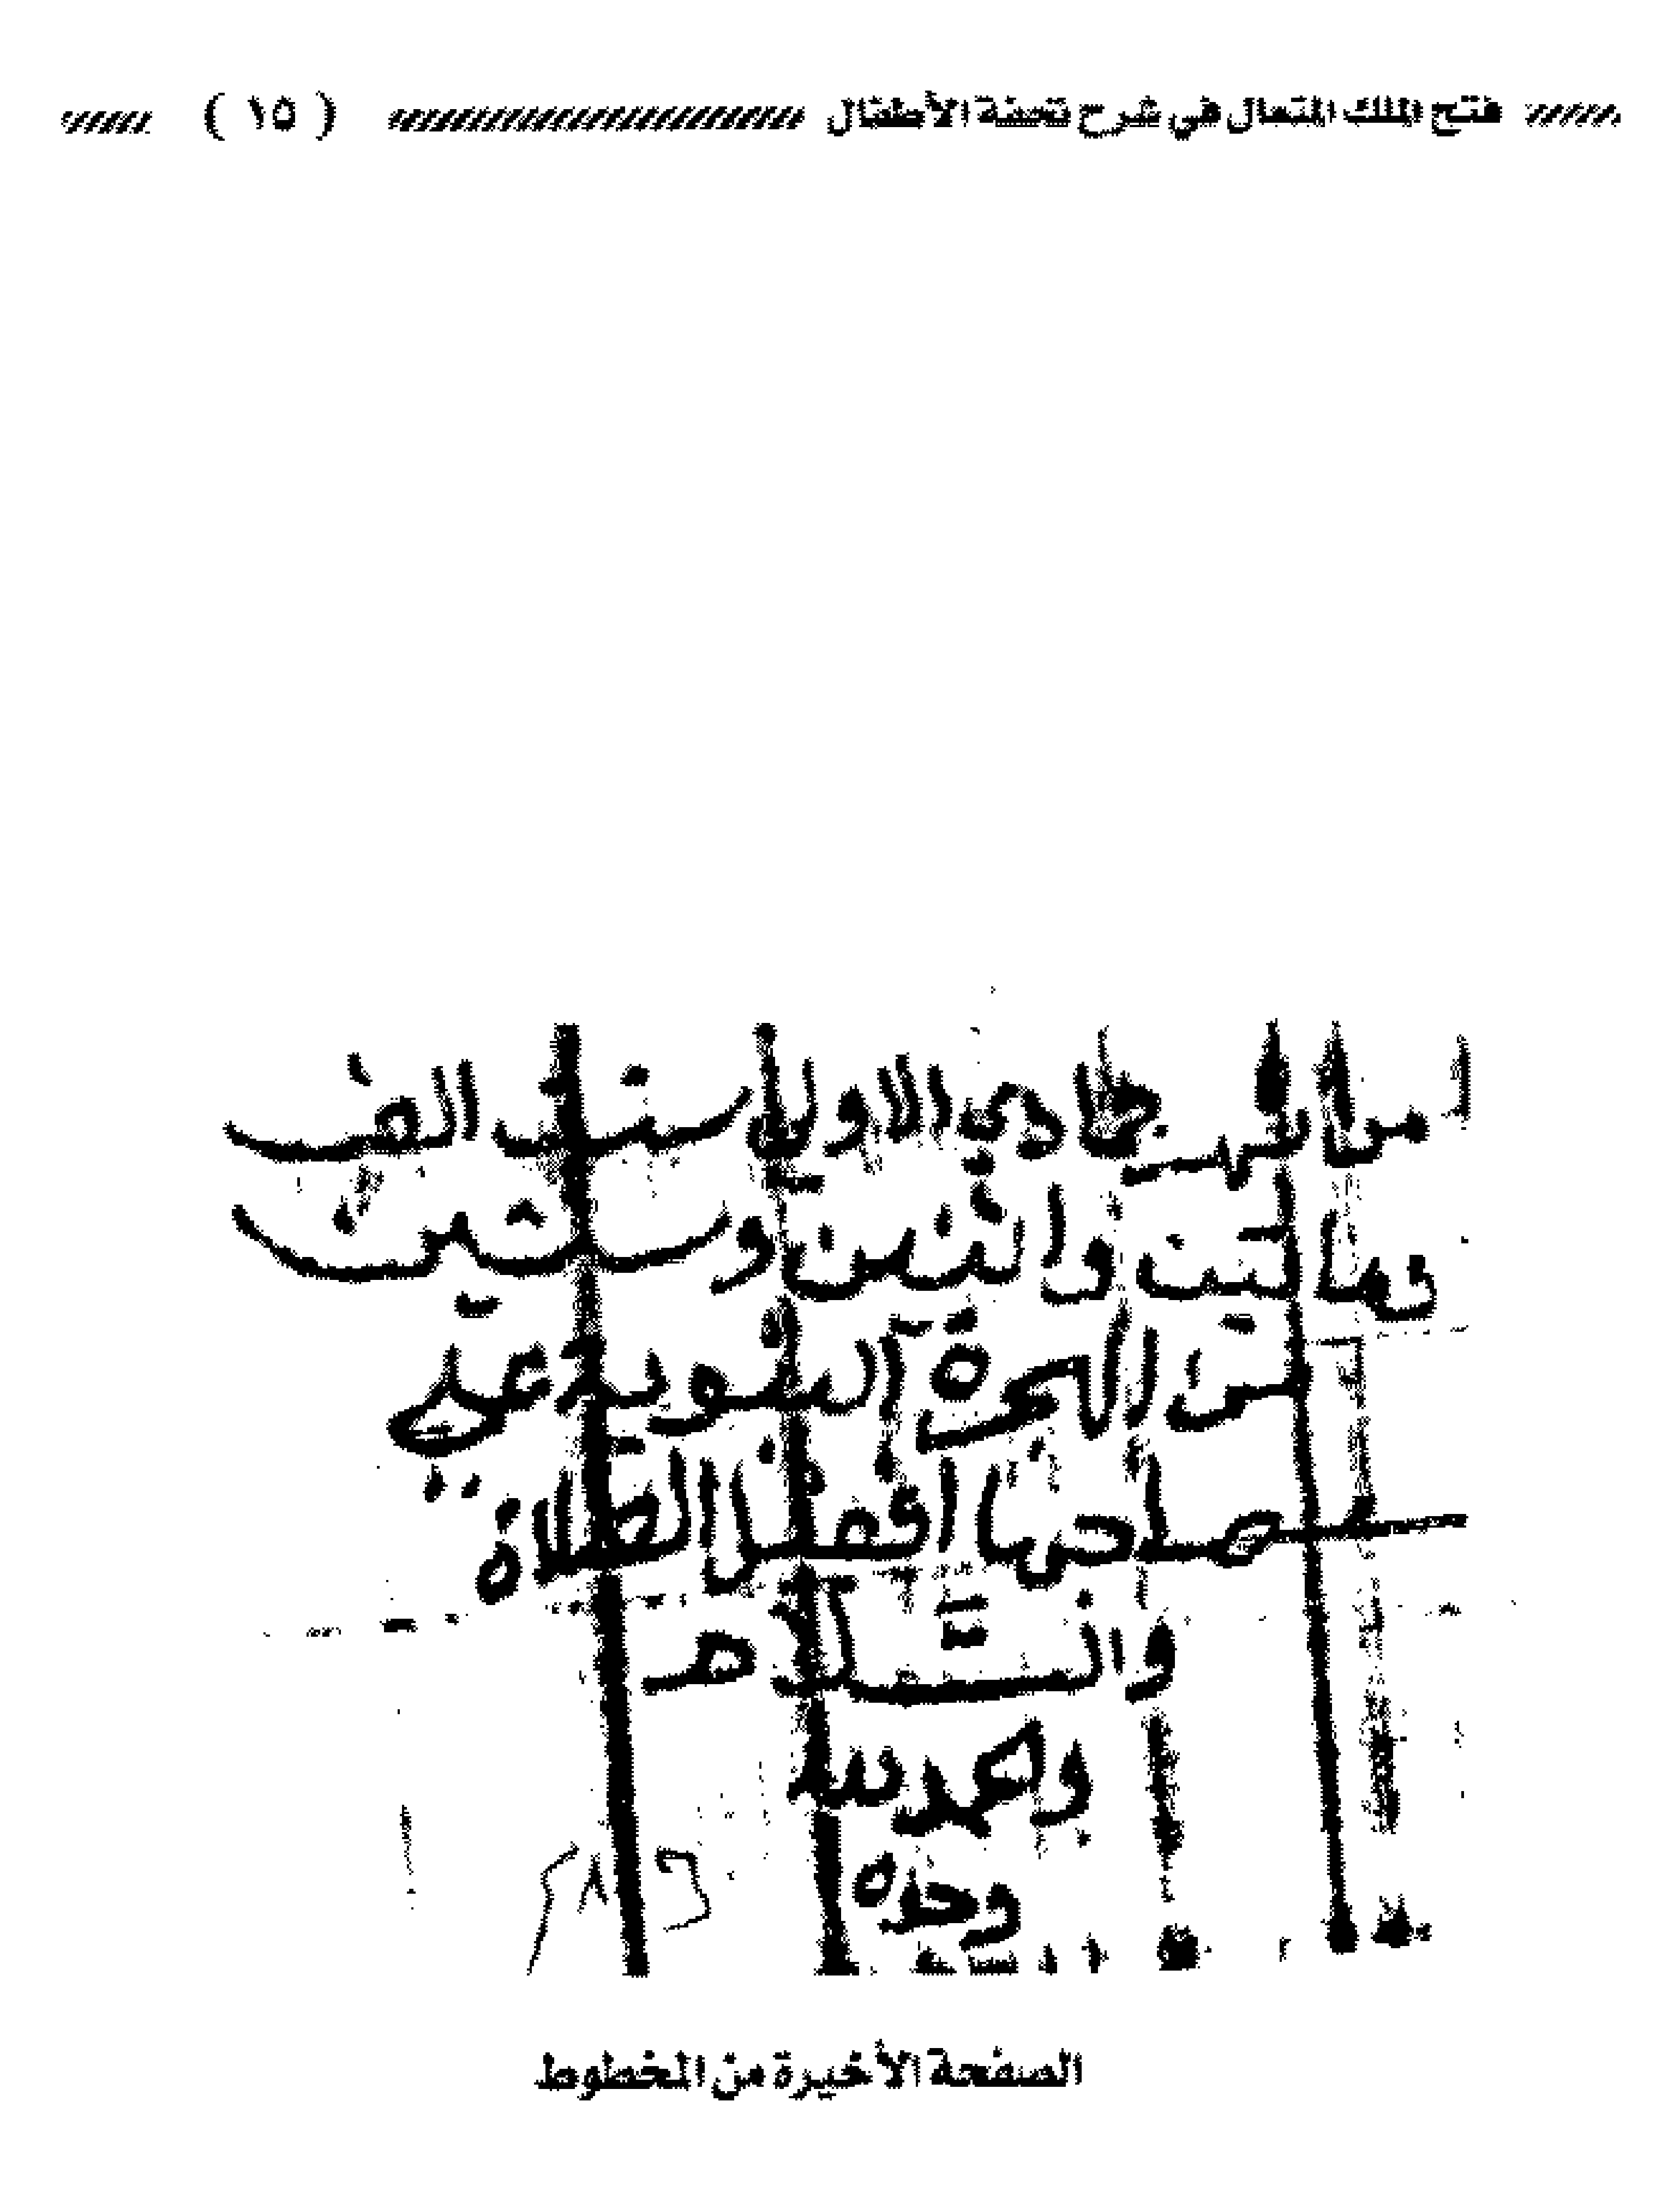 فتح الملك المتعال في شرح تحفة الأطفال ( ١٥ )
من شهر جمادي الاولي سنة الف
ومائتين واثنين وستين
من الهجرة النبوية علي
صاحبها افضل الصلاة
والسلام
والحمد لله
وحده
الصفحة الأخيرة من المخطوط